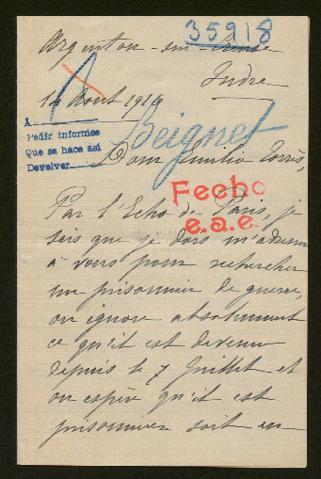 35918
Argenton-sur-Creuse
Indre
14 Août 1916
A
Pedir informes
Que se hace así
Devolver
Beignet
Dom Emilio Torrès,
Fecho
e.a.e.
Par l'Echo de Paris, je
sais que je dois m'adresser
à vous pour rechercher
un prisonnier de guerre,
on ignore absolument
ce qu'il est devenu
depuis le 7 Juillet et
on espère qu'il est
prisonnier soit en